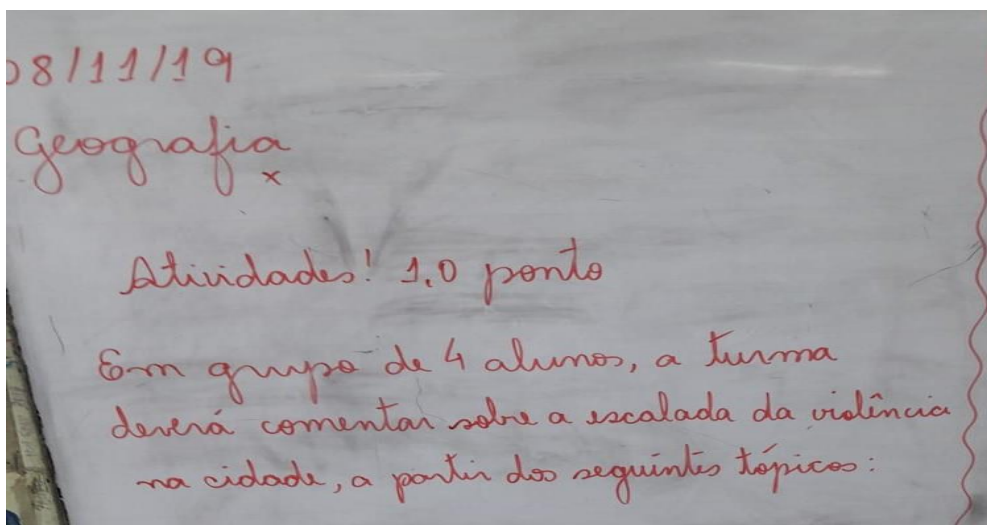 08/11/19
Geografia
x
Atividades! 1,0 ponto
Em grupo de 4 alunos, a turma
deverá comentar sobre a escalada da violência
na cidade, a partir dos seguintes tópicos: